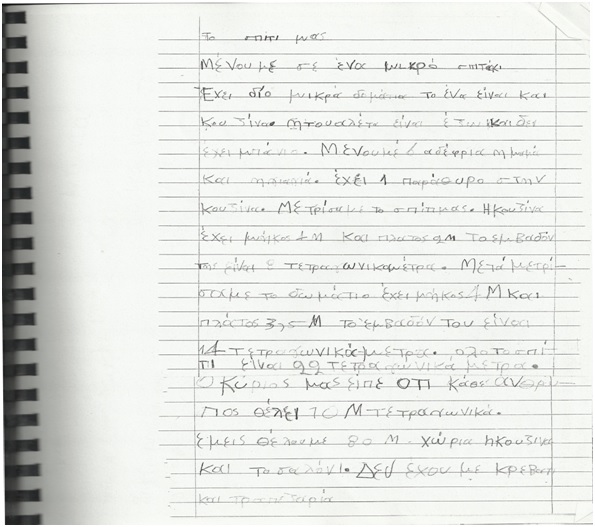 Το σπιτι μας
Μένουμε σε ένα μικρό σπιτάκι
Έχει δίο μικρά δομάτια το ένα είναι και
κουζίνα. η τουαλέτα είναι έξω και δεν
έχει μπάνιο. Μένουμε 6 αδέρφια η μαμά
και η γιαγιά. έχει 1 παράθυρο στην
κουζίνα. Μετρίσαμε το σπίτι μας. Η κουζίνα
έχει μήκος 4 Μ και πλατος 2 Μ το εμβαδόν
της είναι 8 τετραγωνικα μέτρα. Μετά μετρί-
σαμε το δωμάτιο έχει μήκος 4 Μ και
πλάτος 3,5 Μ το εμβαδόν του είναι
14 τετραγωνικά μετρα. ολο το σπί-
τι είναι 22 τετραγωνικά μετρα.
Ο Κύριος μας είπε οτι κάθε ανθρω-
πος θέλει 10 Μ τετραγωνικά.
εμεις θέλουμε 80 Μ. χώρια η κουζίνα
και το σαλόνι. Δεν έχουμε κρεβατι
και τραπεζαρία